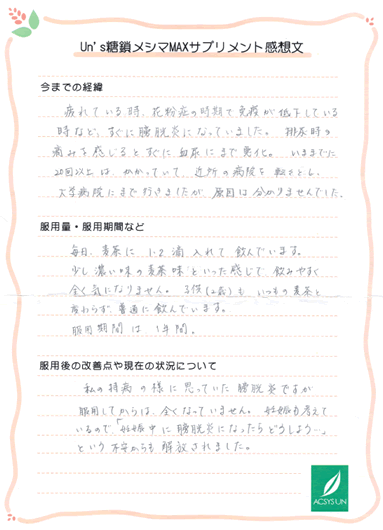 Un's糖鎖メシマMAXサプリメント感想文
今までの経緯
疲れている時、花粉症の時期で免疫が低下している
時など、すぐに膀胱炎になっていました。排尿時の
痛みを感じるとすぐに血尿にまで悪化。いままでに
20回以上は、かかっていて、近所の病院を転々とし、
大学病院にまで行きましたが原因は分かりませんでした。
服用量・服用期間など
毎日、麦茶に1-2滴入れて飲んでいます。
少し濃い味の麦茶味といった感じで飲みやすく
全く気になりません。子供(2歳)も いつもの麦茶と
変わらず、普通に飲んでいます。
服用期間は1年間。
服用後の改善点や現在の状況について
私の持病の様に思っていた膀胱炎ですが
服用してからは、全くなっていません。妊娠も考えて
いるので、「妊娠中に膀胱炎になったらどうしよう…」
という不安からも解放されました。
ACSYSUN